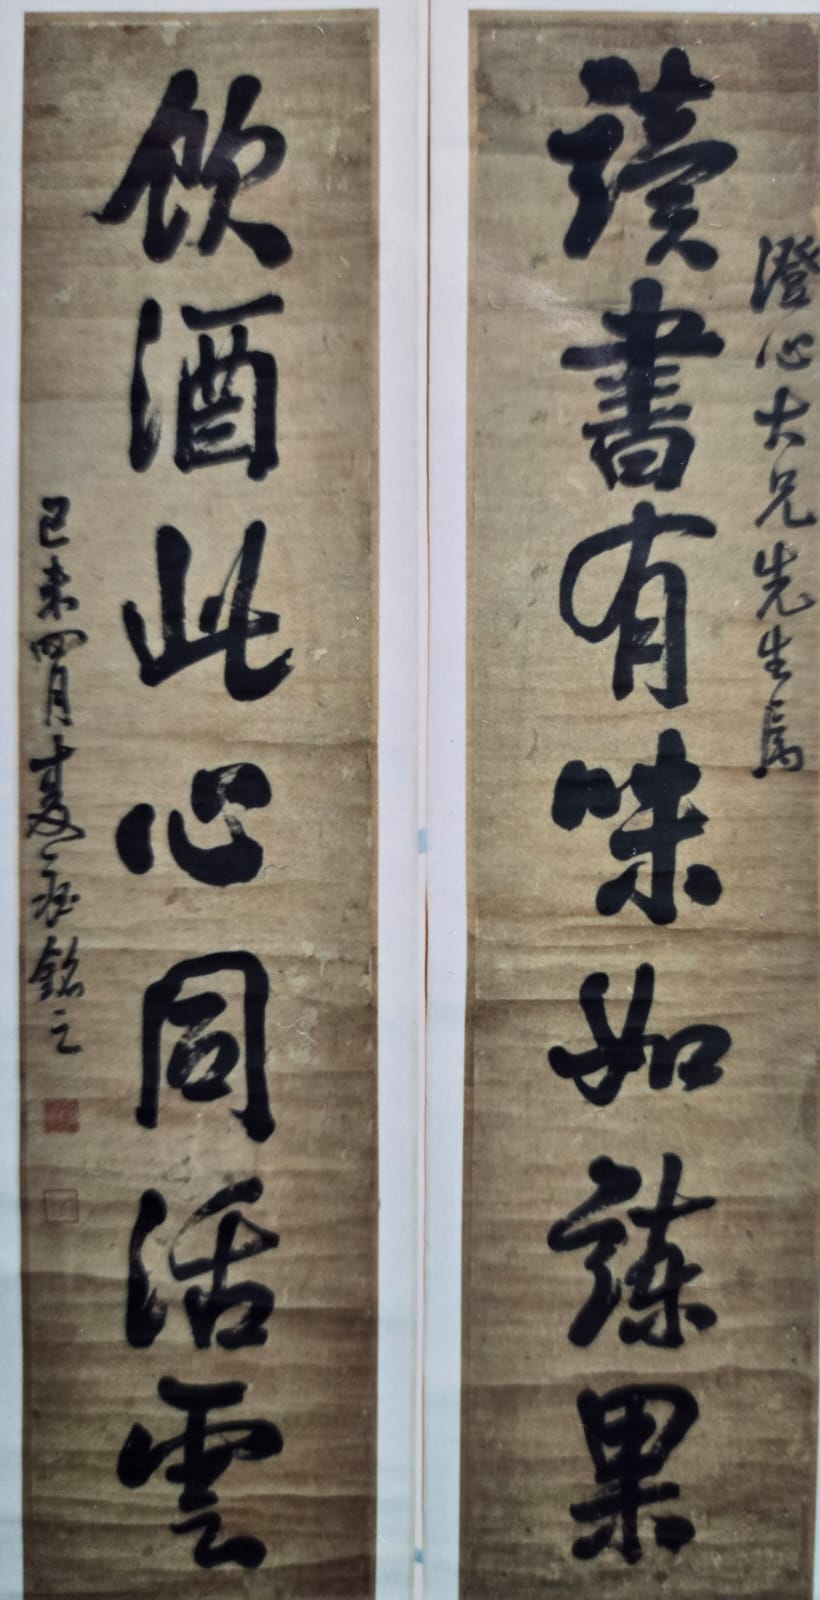 澄心大兄先生属
讀書有味如諫果
飲酒此心同活雲
己未四月銘之